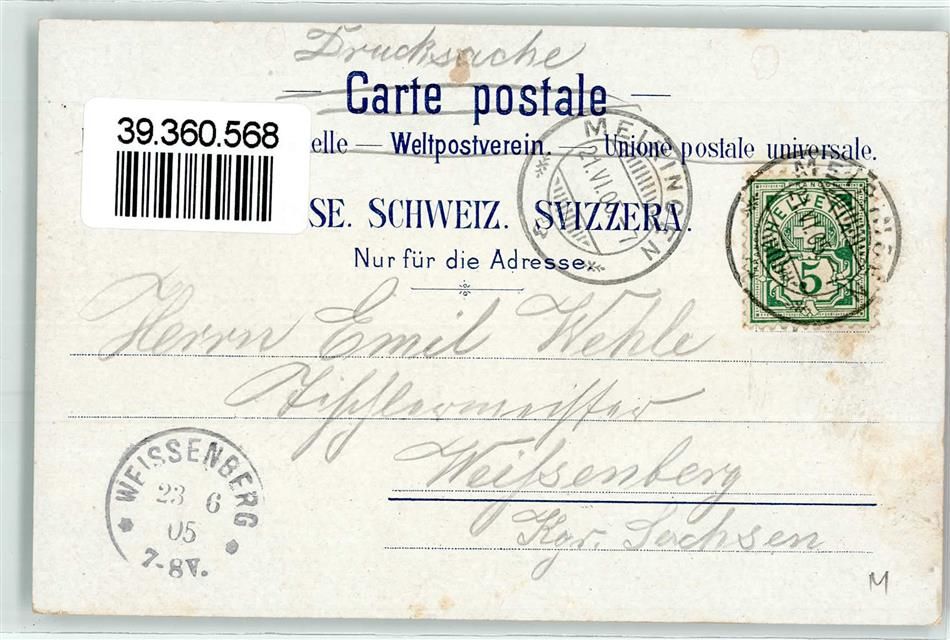 Drucksache
Carte postale
39.360.568
elle — Weltpostverein. — Unione postale universale.
SE. SCHWEIZ. SVIZZERA.
Nur für die Adresse.
MELLINGEN
21.VI.05
HELVETIA
5
Herrn Emil Wehle
Tischlermeister
Weißenberg
Kgr. Sachsen
WEISSENBERG
23 6
05
7-8V.
M